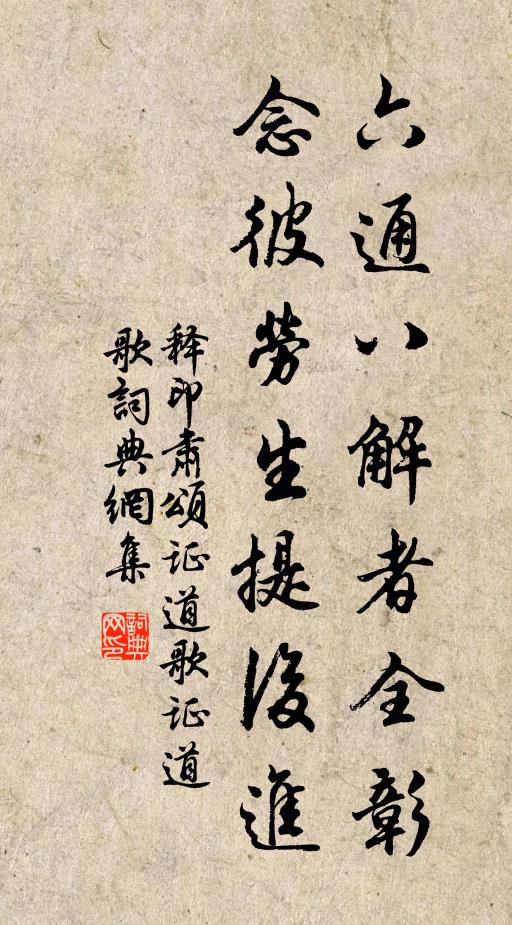 六通八解者全彰
念彼勞生提後進
释印肃頌证道歌证道
歌詞典網集
詞典网印